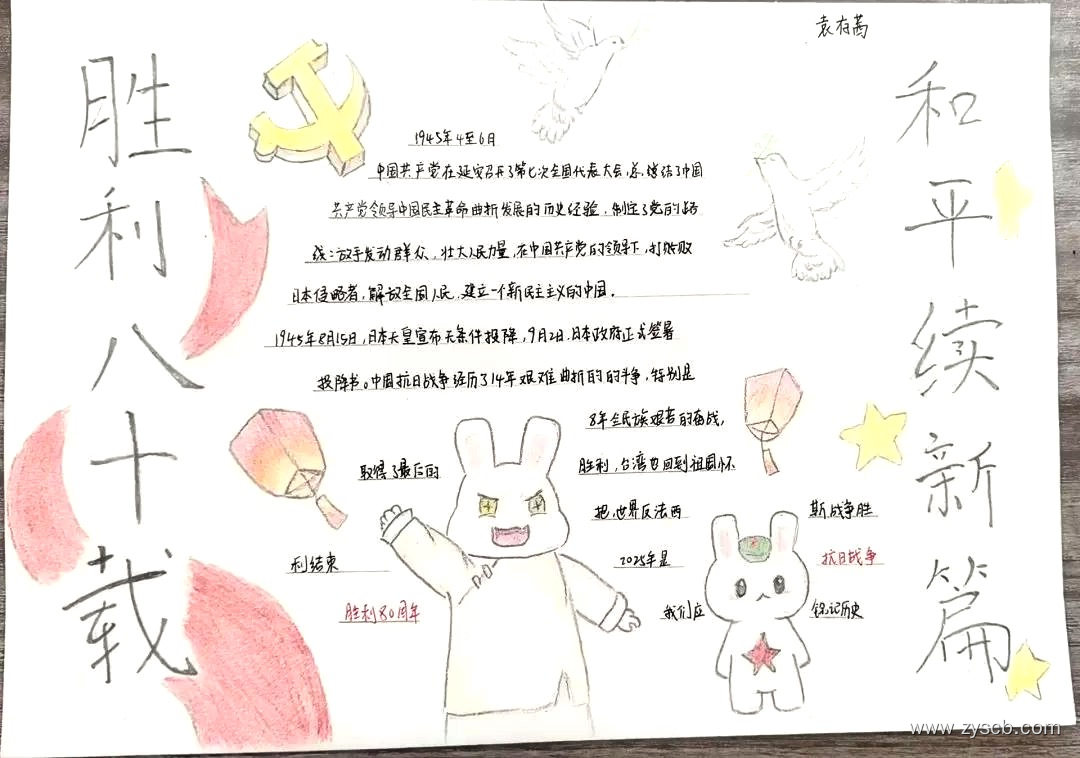 袁有茜
胜利八十载
和平续新篇
1945年4至6月
中国共产党在延安召开了第七次全国代表大会,总结了中国
共产党领导中国民主革命曲折发展的历史经验,制定了党的路
线:放手发动群众,壮大人民力量,在中国共产党的领导下,打败
日本侵略者,解放全国人民,建立一个新民主主义的中国。
1945年8月15日,日本天皇宣布无条件投降,9月2日,日本政府正式签署
投降书。中国抗日战争经历了14年艰难曲折的的斗争,特别是
8年全民族艰苦的奋战,
取得了最后的 胜利,台湾也回到祖国怀
抱,世界反法西 斯战争胜
利结束 2025年是 抗日战争
胜利80周年 我们应 铭记历史
www.zyscb.com